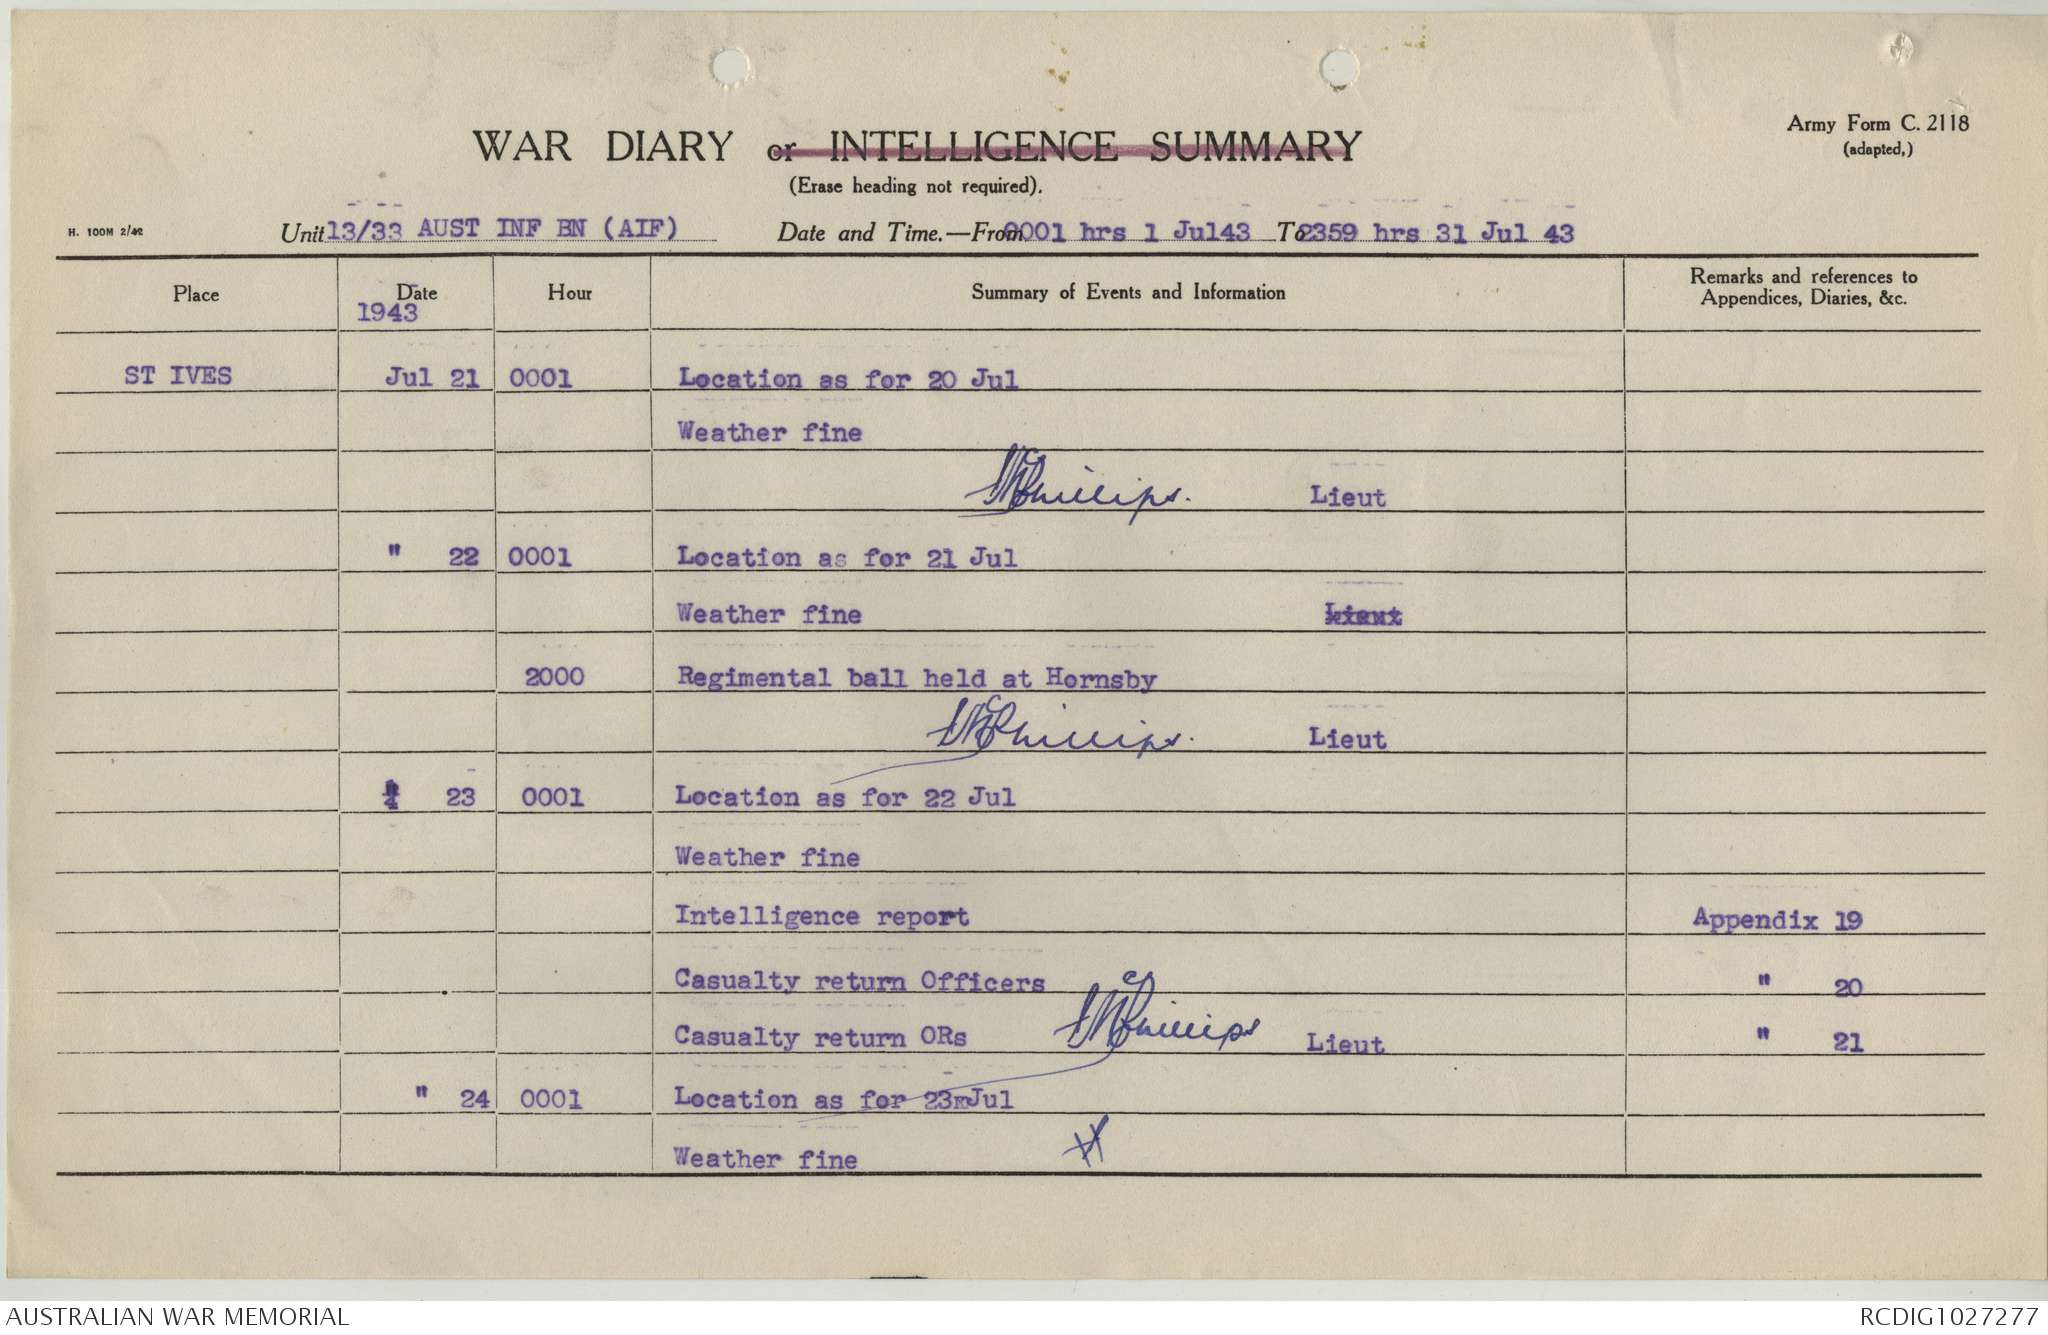 Army Form C. 2118
(adapted,)
WAR DIARY or INTELLIGENCE SUMMARY
(Erase heading not required).
H. 100M 2/42
Unit 13/33 AUST INF BN (AIF) Date and Time.—From 0001 hrs 1 Jul43 To 2359 hrs 31 Jul 43
Place Date Hour Summary of Events and Information Remarks and references to Appendices, Diaries, &c.
1943
ST IVES Jul 21 0001 Location as for 20 Jul
Weather fine
Phillips. Lieut
" 22 0001 Location as for 21 Jul
Weather fine Lieut
2000 Regimental ball held at Hornsby
Phillips. Lieut
23 0001 Location as for 22 Jul
Weather fine
Intelligence report Appendix 19
Casualty return Officers " 20
Casualty return ORs Phillips Lieut " 21
" 24 0001 Location as for 23 Jul
Weather fine
AUSTRALIAN WAR MEMORIAL RCDIG1027277